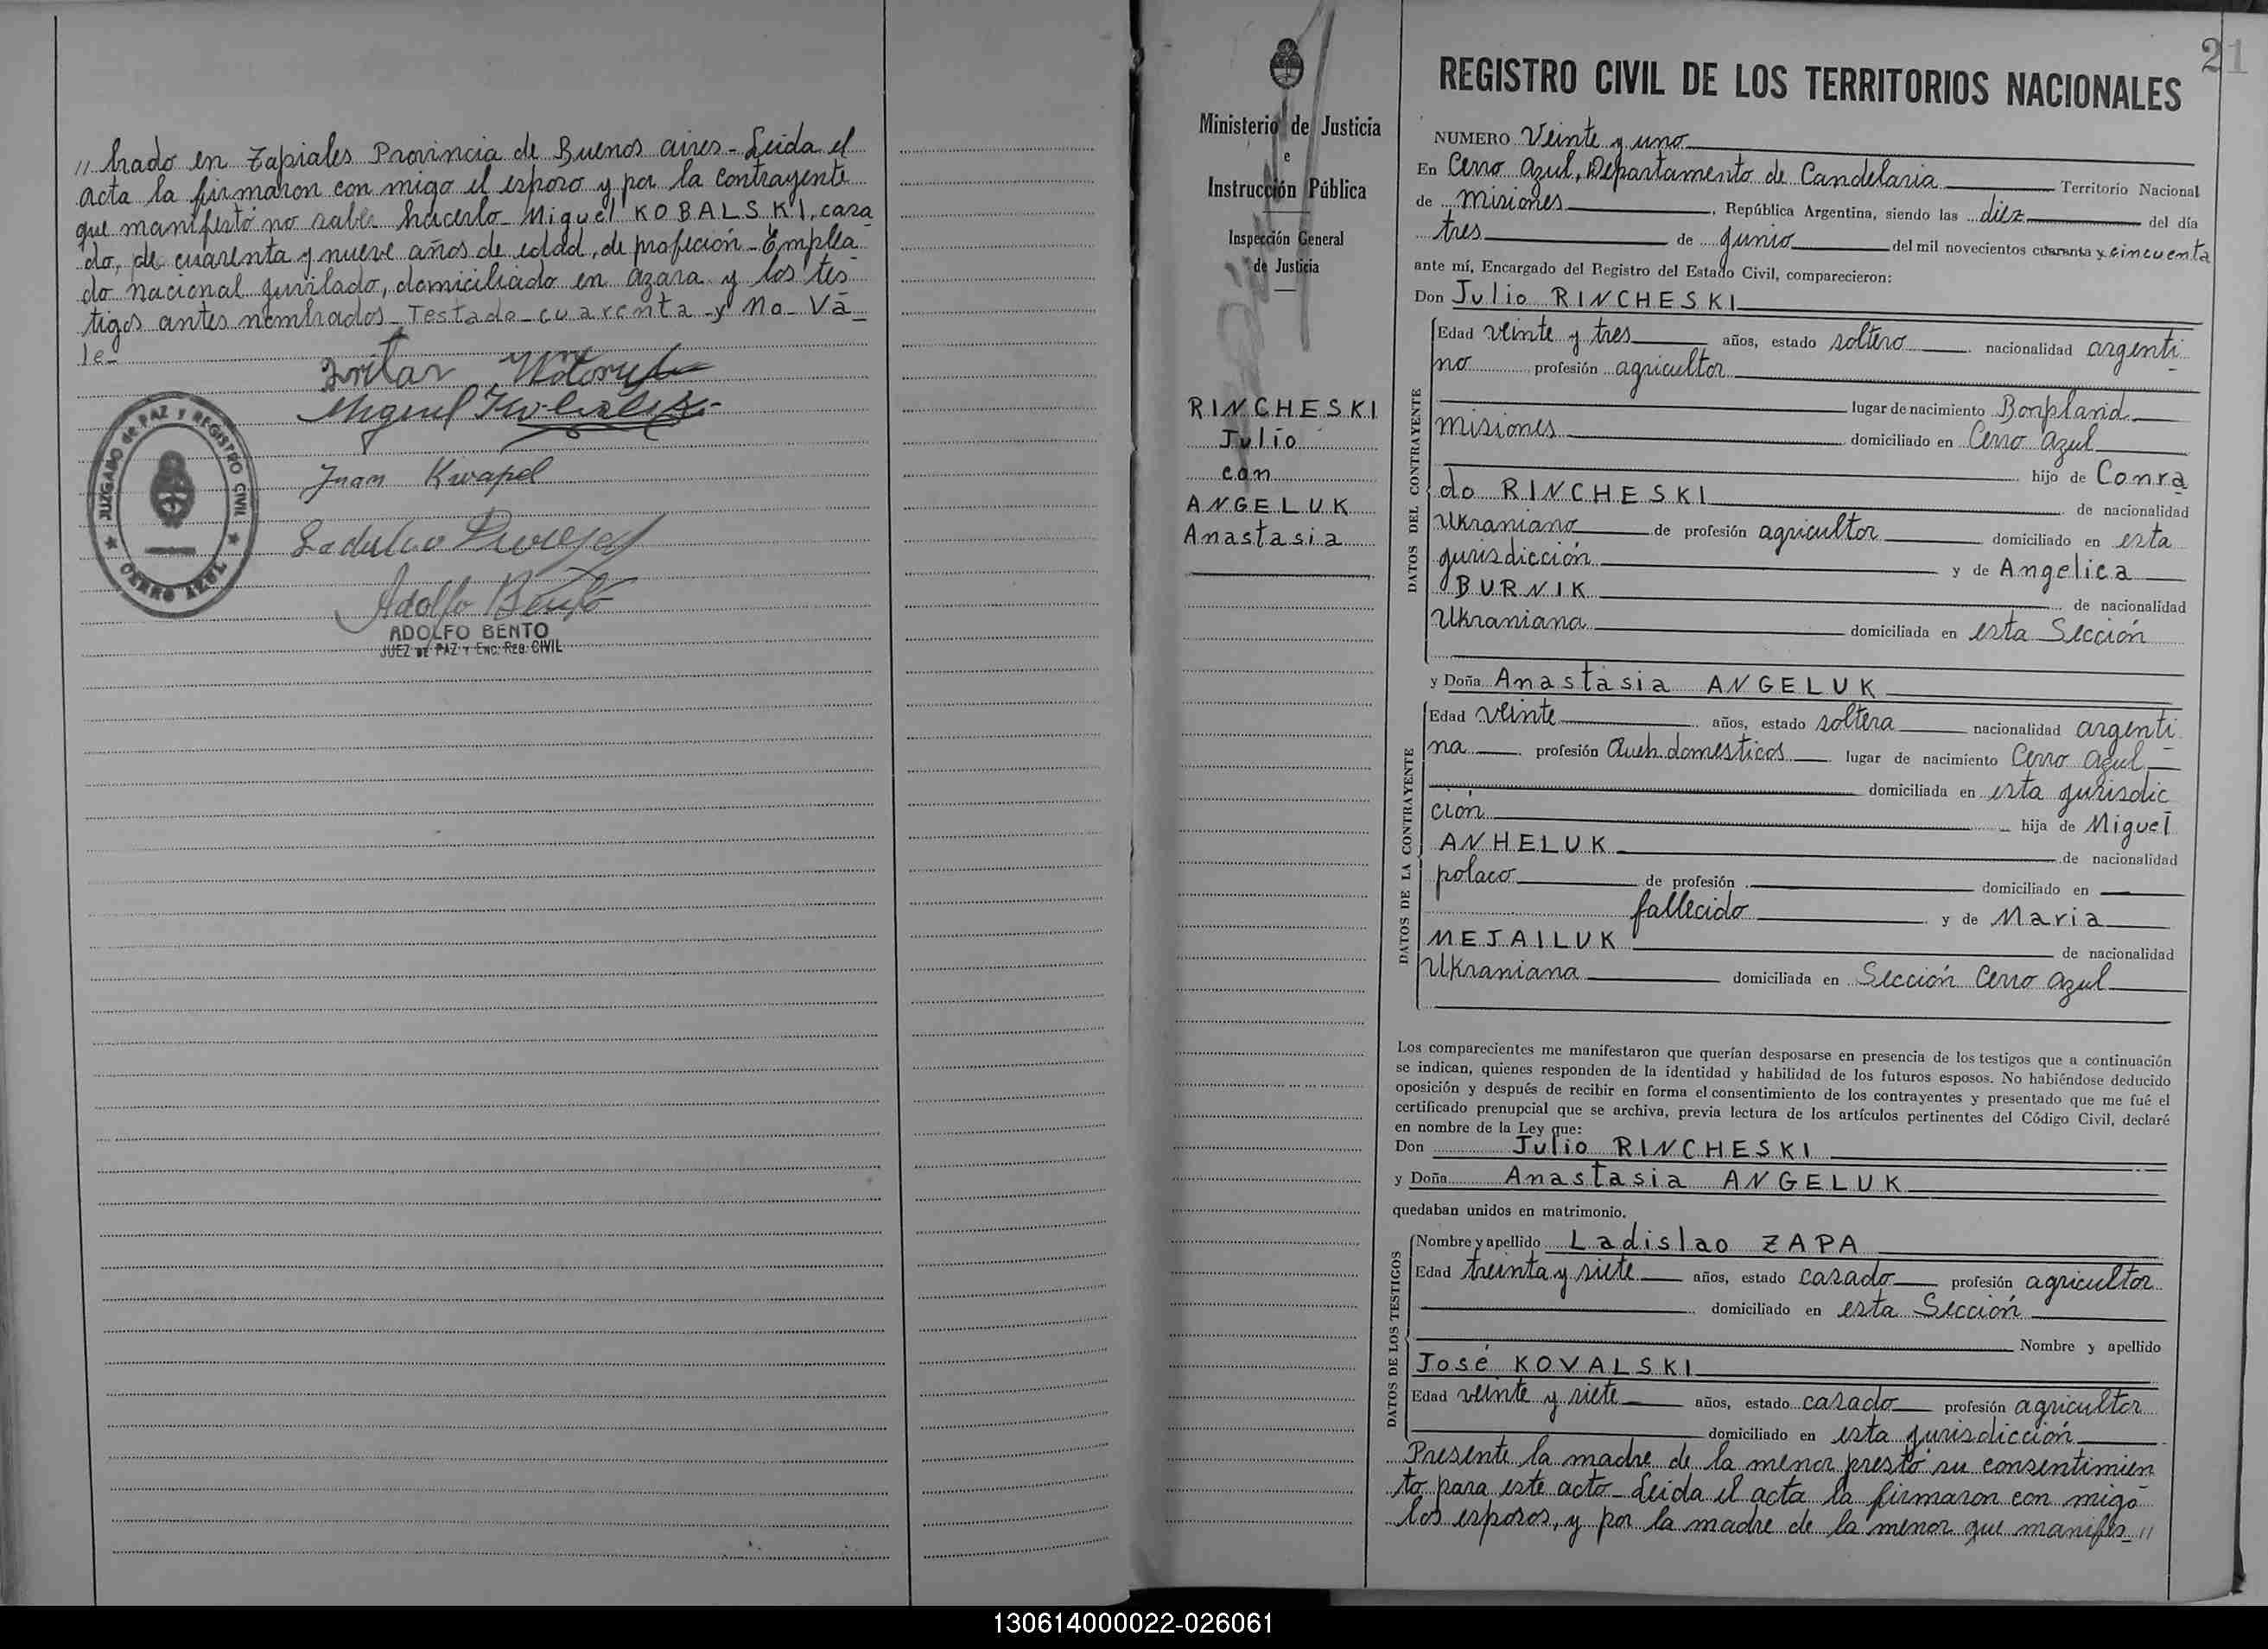 // brado en Tapiales Provincia de Buenos aires - Leida el
acta la firmaron con migo el esposo y por la contrayente
que manifestó no saber hacerlo - Miguel KOBALSKI, casa
do, de cuarenta y nueve años de edad, de profeción - Emplea
do nacional jubilado, domiciliado en azara y los tes
tigos antes nombrados - Testado - cuarenta - y - No - Va -
le -
Juan Kwapel
Adolfo Bento
ADOLFO BENTO
JUEZ DE PAZ Y ENC. REG. CIVIL
JUZGADO de PAZ Y REGISTRO CIVIL
CERRO AZUL
21
Ministerio de Justicia
e
Instrucción Pública
Inspección General
de Justicia
RINCHESKI
Julio
con
ANGELUK
Anastasia
REGISTRO CIVIL DE LOS TERRITORIOS NACIONALES
NUMERO Veinte y uno
En Cerro Azul, Departamento de Candelaria Territorio Nacional
de misiones, República Argentina, siendo las diez del día
tres de Junio del mil novecientos cuarenta y cincuenta
ante mí, Encargado del Registro del Estado Civil, comparecieron:
Don Julio RINCHESKI
DATOS DEL CONTRAYENTE
Edad veinte y tres años, estado soltero nacionalidad argenti
no profesión agricultor
lugar de nacimiento Bonpland
misiones domiciliado en Cerro Azul
hijo de Conra
do RINCHESKI de nacionalidad
Ukraniano de profesión agricultor domiciliado en esta
jurisdicción y de Angelica
BURNIK de nacionalidad
Ukraniana domiciliada en esta Sección
y Doña Anastasia ANGELUK
DATOS DE LA CONTRAYENTE
Edad veinte años, estado soltera nacionalidad argenti
na profesión Queh. domesticos lugar de nacimiento Cerro Azul
domiciliada en esta jurisdic
ción hija de Miguel
ANHELUK de nacionalidad
polaco de profesión domiciliado en
fallecido y de Maria
MEJAILUK de nacionalidad
Ukraniana domiciliada en Sección Cerro Azul
Los comparecientes me manifestaron que querían desposarse en presencia de los testigos que a continuación
se indican, quienes responden de la identidad y habilidad de los futuros esposos. No habiéndose deducido
oposición y después de recibir en forma el consentimiento de los contrayentes y presentado que me fué el
certificado prenupcial que se archiva, previa lectura de los artículos pertinentes del Código Civil, declaré
en nombre de la Ley que:
Don Julio RINCHESKI
y Doña Anastasia ANGELUK
quedaban unidos en matrimonio.
DATOS DE LOS TESTIGOS
Nombre y apellido Ladislao ZAPA
Edad treinta y siete años, estado casado profesión agricultor
domiciliado en esta Sección
Nombre y apellido
José KOVALSKI
Edad veinte y siete años, estado casado profesión agricultor
domiciliado en esta jurisdicción
Presente la madre de la menor prestó su consentimien
to para este acto - Leida el acta la firmaron con migo
los esposos, y por la madre de la menor que manifes //
130614000022-026061